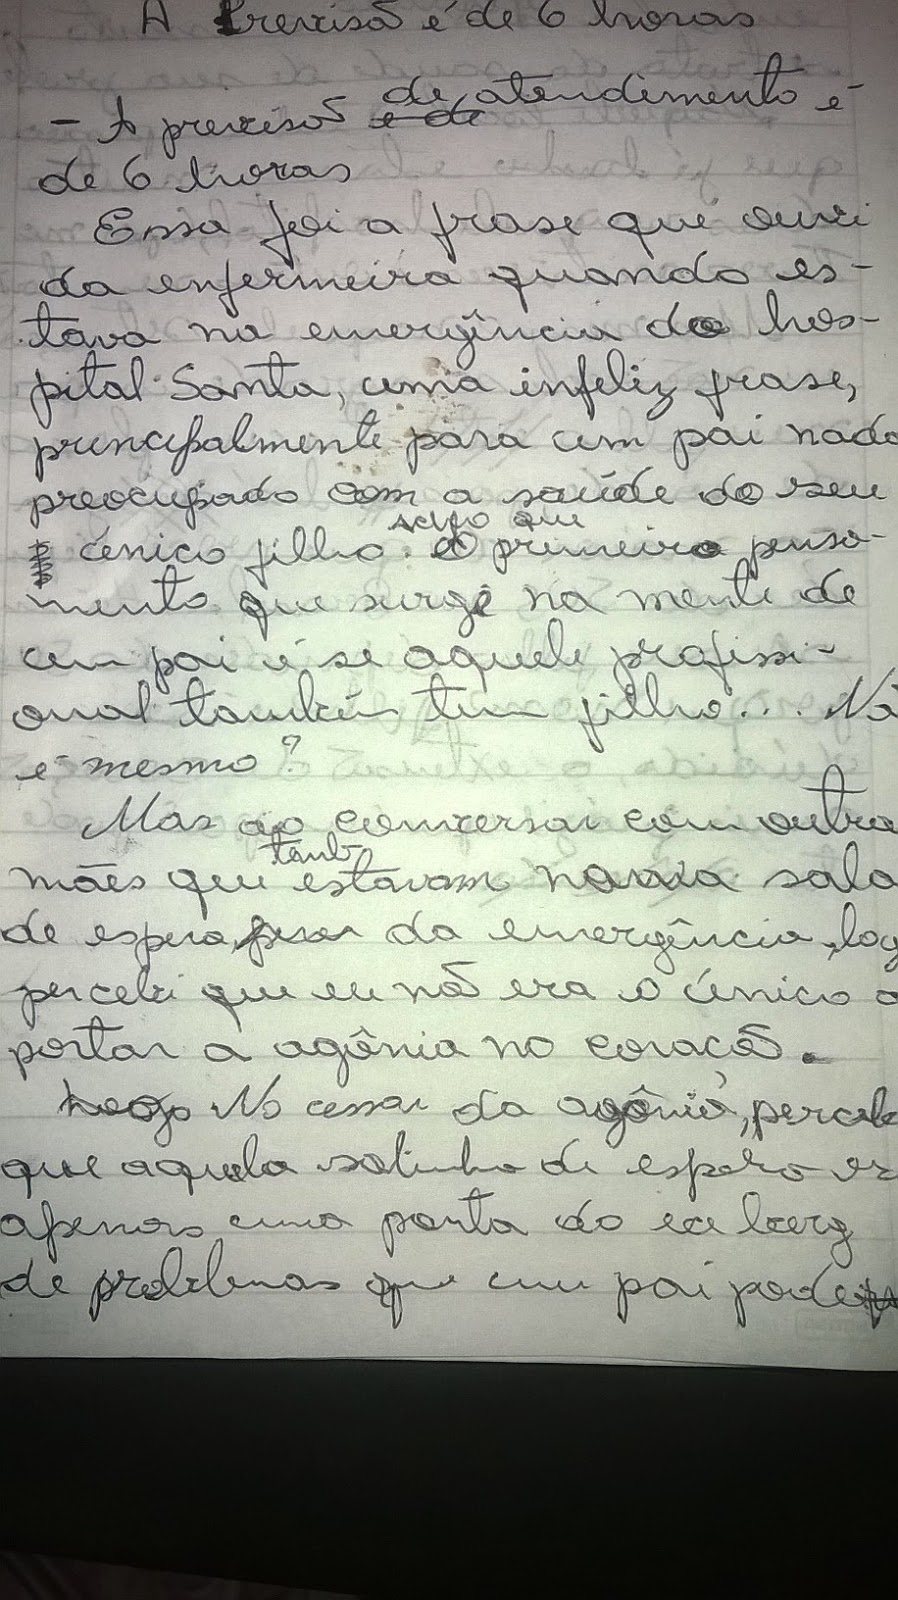 A Previsão é de 6 horas
- A previsão de atendimento é
de 6 horas
Essa foi a frase que ouvi
da enfermeira quando es-
tava na emergência do hos-
pital Santa, uma infeliz frase,
principalmente para um pai nada
preocupado com a saúde do seu
único filho. acho que O primeiro pensa-
mento que surge na mente de
um pai é se aquele profissi-
onal também tem filho... Nã
é mesmo?
Mas ao conversar com outra
mães que tamb estavam sala
de espera da emergência, log
percebi que eu não era o único a
portar a agônia no coração.
No cessar da agônia, perceb
que aquela salinha de espera er
apenas uma ponta do ice berg
de problemas que um pai pode